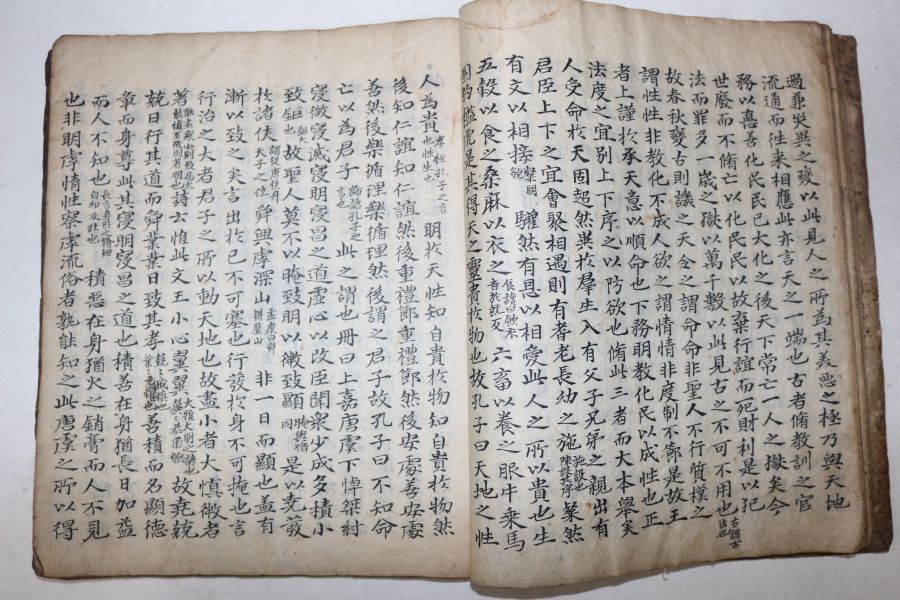 過兼災異之變以此見人之所為其美惡之極乃與天地
流通而往來相應此亦言天之一端也古者脩教訓之官
務以悳善化民民已大化之後天下常亡一人之獄矣今
世廢而不脩亡以化民民以故棄行誼而死財利是以犯
法而罪多一歲之獄以萬千數以此見古之不可不用也古謂古法也
故春秋變古則譏之天令之謂命命非聖人不行質樸之
謂性性非教化不成人欲之謂情情非度制不節是故王
者上謹於承天意以順命也下務明教化民以成性也正
法度之宜別上下序之以防欲也脩此三者而大本舉矣
人受命於天固超然異於羣生入有父子兄弟之親出有
君臣上下之宜會聚相遇則有耆老長幼之施施設也陳設其序粲然
有文以相接粲明貌驩然有恩以相愛此人之所以貴也生
五穀以食之桑麻以衣之食讀曰飤衣音於旣反六畜以養之服牛乘馬
圈豹檻虎是其得天之靈貴於物也故孔子曰天地之性
人為貴也孝經孔子之言也性生也明於天性知自貴於物知自貴於物然
後知仁誼知仁誼然後重禮節重禮節然後安處善安處
善然後樂循理樂循理然後謂之君子故孔子曰不知命
亡以為君子論語孔子之言也此之謂也册曰上嘉唐虞下悼桀紂
寖微寖滅寖明寖昌之道虛心以改臣聞衆少成多積小
致鉅也故聖人莫不以晻致明以微致顯是以堯發
於諸侯謂從唐侯升天子之位舜興虖深山孟康曰舜耕歷山非一日而顯也盖有
漸以致之矣言出於己不可塞也行發於身不可掩也言
行治之大者君子之所以動天地也故盡小者大慎微者
著能盡衆小則致高大能慎至微則著明也詩云惟此文王小心翼翼大雅大明之詩也翼翼恭肅貌故堯兢
兢日行其道而舜業業日致其孝兢兢戒慎也業業危懼也善積而名顯德
章而身尊此其寖明寖昌之道也積善在身猶長日加益
而人不知也積惡在身猶火之銷膏而人不見
也非明虖情性察虖流俗者孰能知之此唐虞之所以得